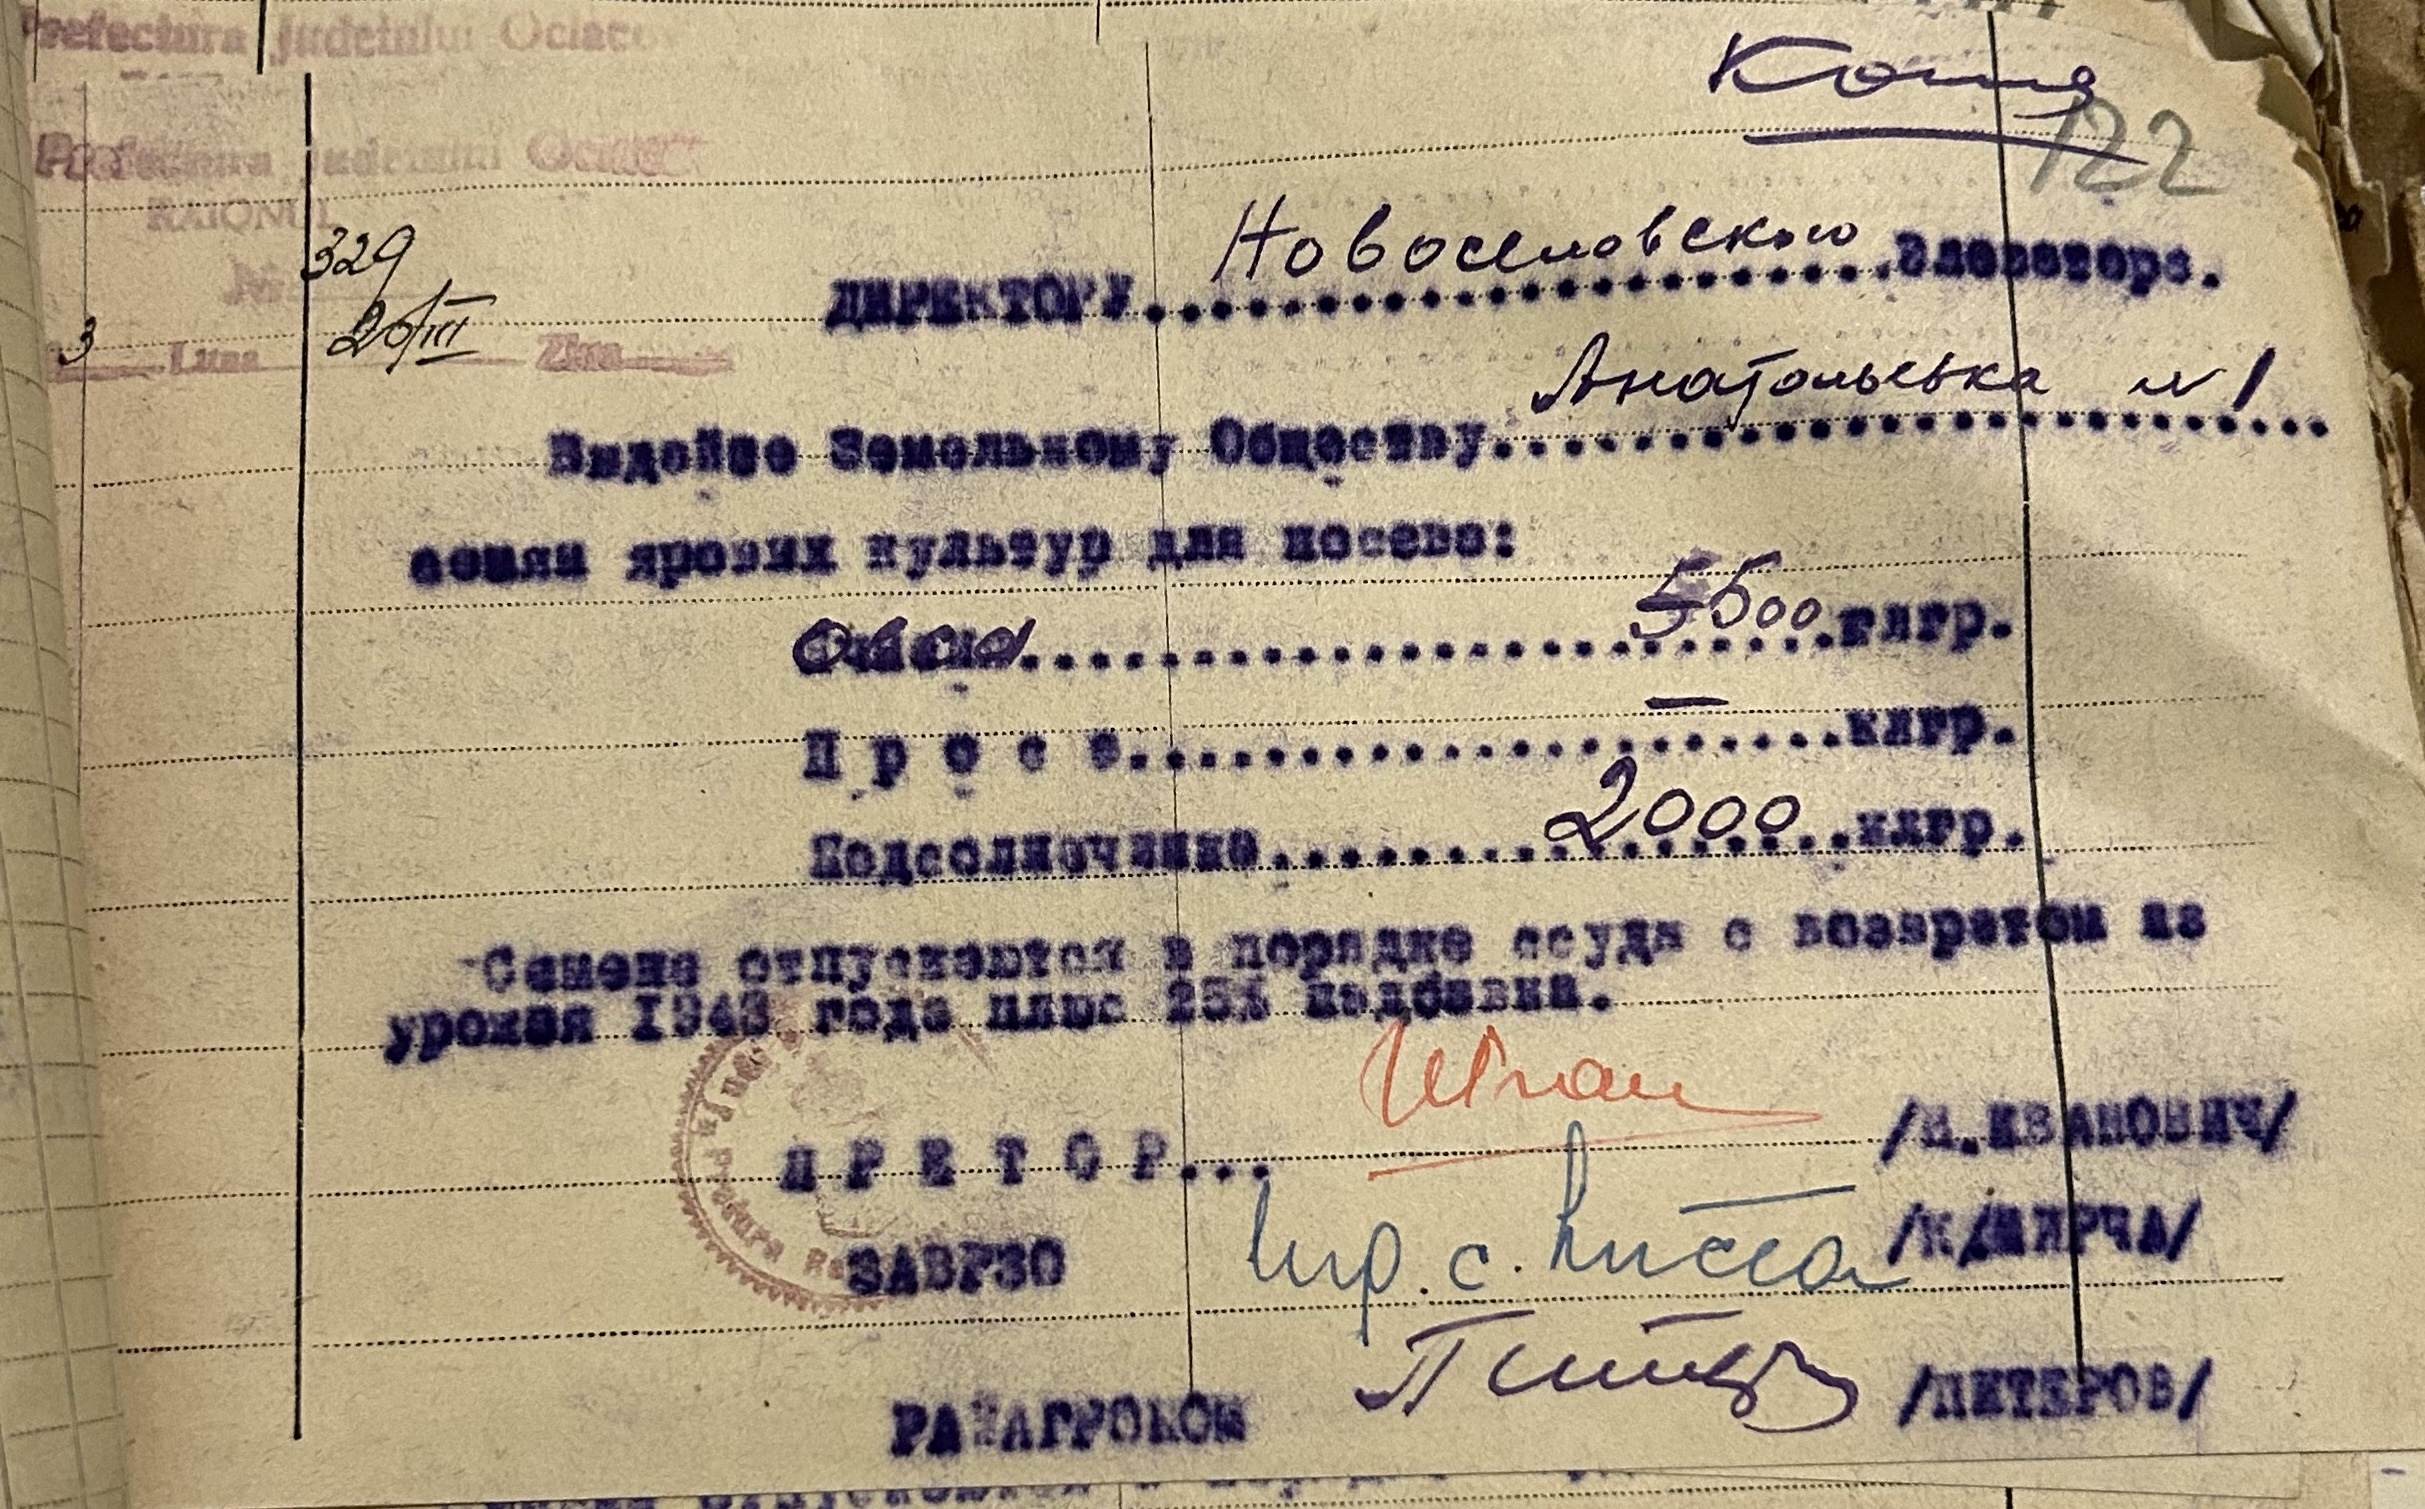 Prefectura Județului Ociacov
Копия
122
Prefectura Județului Ociacov
RAIONUL
Nr. 329
3 Luna 20/III Ziua
ДИРЕКТОРУ Новоселовского Элеватора.
Выдайте Земельному Обществу Анатольевка №1
семян яровых культур для посева:
овса 5500 клгр.
П р о с о — клгр.
Подсолнечника 2000 клгр.
Семена отпускаются в порядке ссуды с возвратом из
урожая 1943 года плюс 25% надбавки.
П Р Е Т О Р... /И.ИВАНОВИЧ/
ЗАВРЗО /К/МИРЧА/
РАЙАГРОНОМ /ПИТЕРОВ/